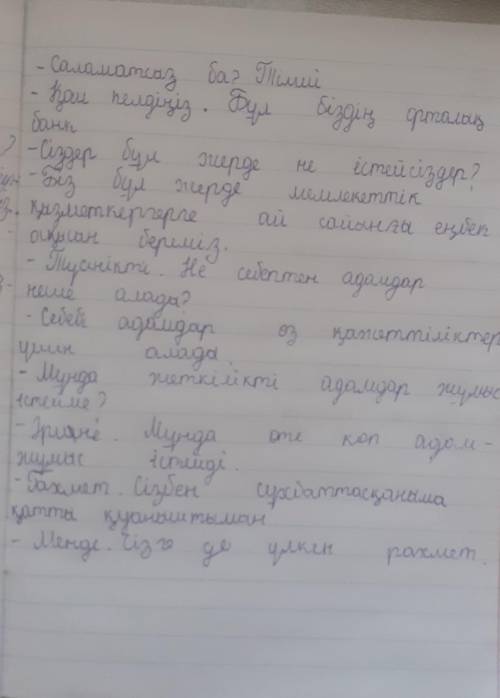 - Саламатсаз ба? Тімий
- Қаш келдіңіз. Бұл біздің орталық
банк
- Сіздер бұл жерде не істейсіздер?
- Біз бұл жерде мемлекеттік
қазметкерлерге ай сайынғы еңбек
ақысан береміз.
- Түсінікті. Не себептен адамдар
неше алада?
- Себебі адамдар өз қажеттіліктер
үшін алада.
- Мұнда жеткілікті адамдар жұмыс
істейме?
- Әрине. Мұнда өте көп адам-
жұмыс істейді.
- Рахмет. Сізбен сұхбаттасқаныма
қатты қуаныштыман
- Менде. Сізге де үлкен рахмет.